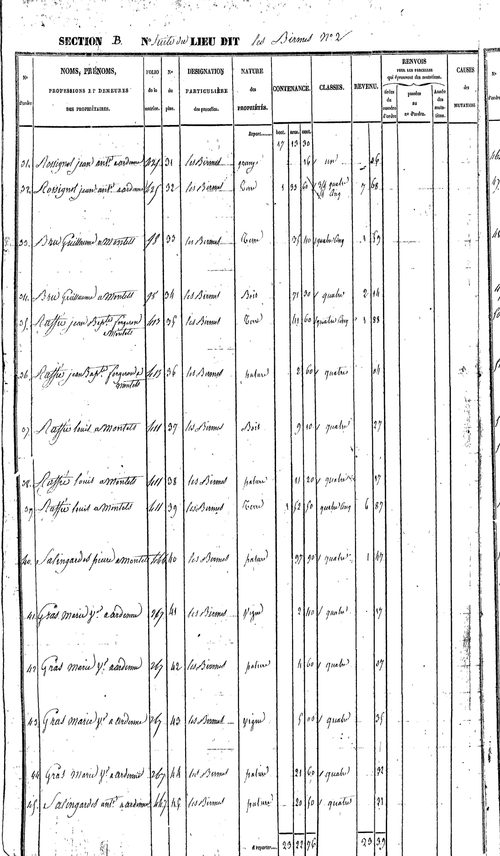 SECTION B. N° Suite du LIEU DIT les Birmes N° 2
N° d'ordre. NOMS, PRÉNOMS, PROFESSIONS ET DEMEURES DES PROPRIÉTAIRES. FOLIO de la matrice. N° du plan. DÉSIGNATION PARTICULIÈRE des parcelles. NATURE des PROPRIÉTÉS. CONTENANCE. CLASSES. REVENU. RENVOIS POUR LES PARCELLES qui éprouvent des mutations. CAUSES des MUTATIONS.
Report hect. ares. cent.
17 13 30
31. Rossignol jean ant. e ardenne 425 31 les Birmes grange 16 un 26
32. Rossignol jean ant. e ardenne 425 32 les Birmes Terre 1 33 60 3/4 quatre cinq 7 68
33. Bru Guillaume a Montels 98 33 les Birmes Terre 35 40 quatre cinq 1 59
34. Bru Guillaume a Montels 98 34 les Birmes Bois 71 30 quatre 2 14
35. Raffie jean Bapt. forgeron a Montels 413 35 les Birmes Terre 41 60 quatre cinq 1 88
36. Raffie jean Bapt. forgeron a montels 413 36 les Birmes pature 2 60 quatre 04
37. Raffie louis a montels 411 37 les Birmes Bois 9 10 quatre 27
38. Raffie louis a Montels 411 38 les Birmes pature 11 20 quatre 17
39. Raffie louis a Montels 411 39 les Birmes Terre 1 52 50 quatre cinq 6 87
40. Salingardes pierre a Montels 446 40 les Birmes pature 97 90 quatre 1 47
41. Gras marie v. e ardenne 267 41 les Birmes Vigne 2 40 quatre 17
42. Gras marie v. e ardenne 267 42 les Birmes pature 4 60 quatre 07
43. Gras marie v. e ardenne 267 43 les Birmes vigne 5 00 quatre 35
44. Gras marie v. e ardenne 267 44 les Birmes pature 21 60 quatre 32
45. Salingardes ant. e ardenne 447 45 les Birmes pature 20 50 quatre 31
A reporter 23 22 76 23 39